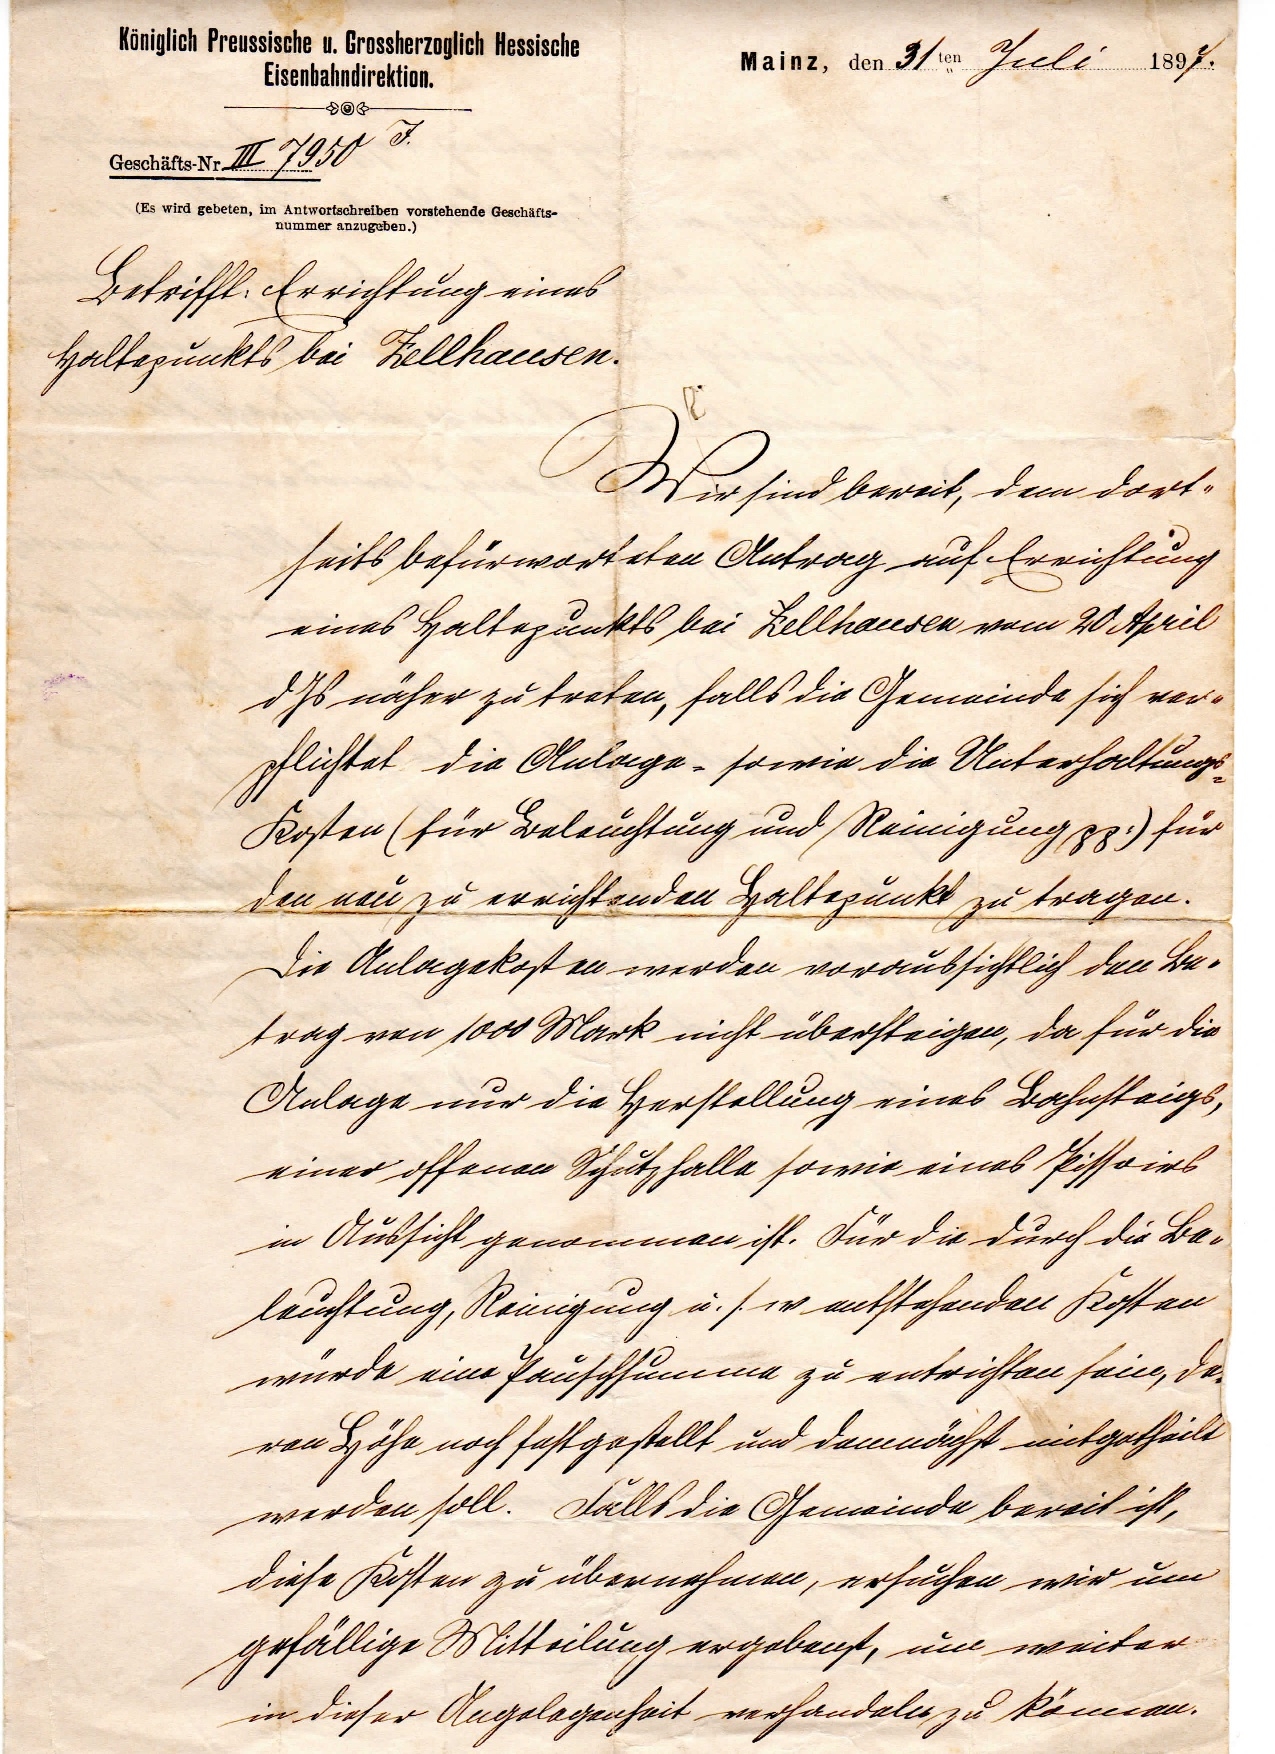 Königlich Preussische u. Grossherzoglich Hessische
Eisenbahndirektion.
Mainz, den 31ten Juli 1897.
Geschäfts-Nr. III 7950 J.
(Es wird gebeten, im Antwortschreiben vorstehende Geschäfts-
nummer anzugeben.)
Betrifft: Errichtung eines
Haltepunkts bei Zellhausen.
Wir sind bereit, dem dort-
seits befürworteten Antrag auf Errichtung
eines Haltepunkts bei Zellhausen vom 20 April
d Js näher zu treten, falls die Gemeinde sich ver-
pflichtet die Anlage- sowie die Unterhaltungs-
Kosten (für Beleuchtung und Reinigung pp.) für
den neu zu errichtenden Haltepunkt zu tragen.
Die Anlagekosten werden voraussichtlich den Be-
trag von 1000 Mark nicht übersteigen, da für die
Anlage nur die Herstellung eines Bahnsteigs,
einer offenen Schutzhalle sowie eines Pissoirs
in Aussicht genommen ist. Für die durch die Be-
leuchtung, Reinigung u. s. w entstehenden Kosten
würde eine Pauschsumme zu entrichten sein, de-
ren Höhe noch festgestellt und demnächst mitgetheilt
werden soll. Falls die Gemeinde bereit ist,
diese Kosten zu übernehmen, ersuchen wir um
gefällige Mitteilung ergebenst, um weiter
in dieser Angelegenheit verhandeln zu können.